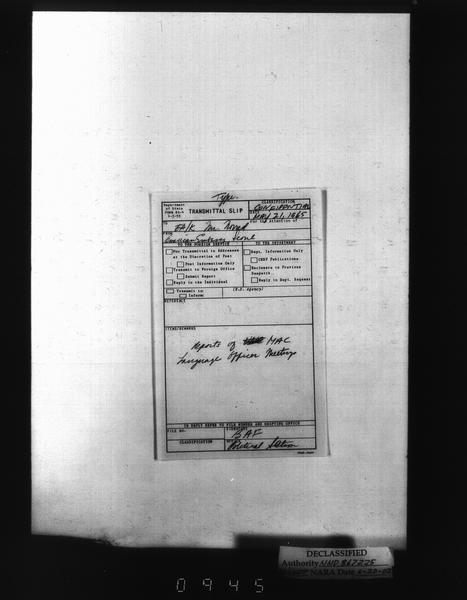 Type
Department of State
FORM DS-4
TRANSMITTAL SLIP
CLASSIFICATION
CONFIDENTIAL
DATE
MAY 21, 1965
For the Attention of
TO
EA/K Mr. Norred
FROM
American Embassy Seoul
TO THE FOREIGN SERVICE
For Transmittal to Addressee at the Discretion of Post
Post Information Only
Transmit to Foreign Office
Submit Report
Reply to the Individual
TO THE DEPARTMENT
Dept. Information Only
CERP Publications
Enclosure to Previous Despatch
Reply to Dept. Request
Transmit to:
Inform:
(U.S. Agency)
REFERENCE
ITEMS/REMARKS
Reports of MAC
Language Officer Meetings
IN REPLY REFER TO FILE NUMBER AND DRAFTING OFFICE
FILE NO.
CLASSIFICATION
SIGNATURE
BAF
Political Section
DECLASSIFIED
Authority NND 867275
NARA Date 6-20-02
0945